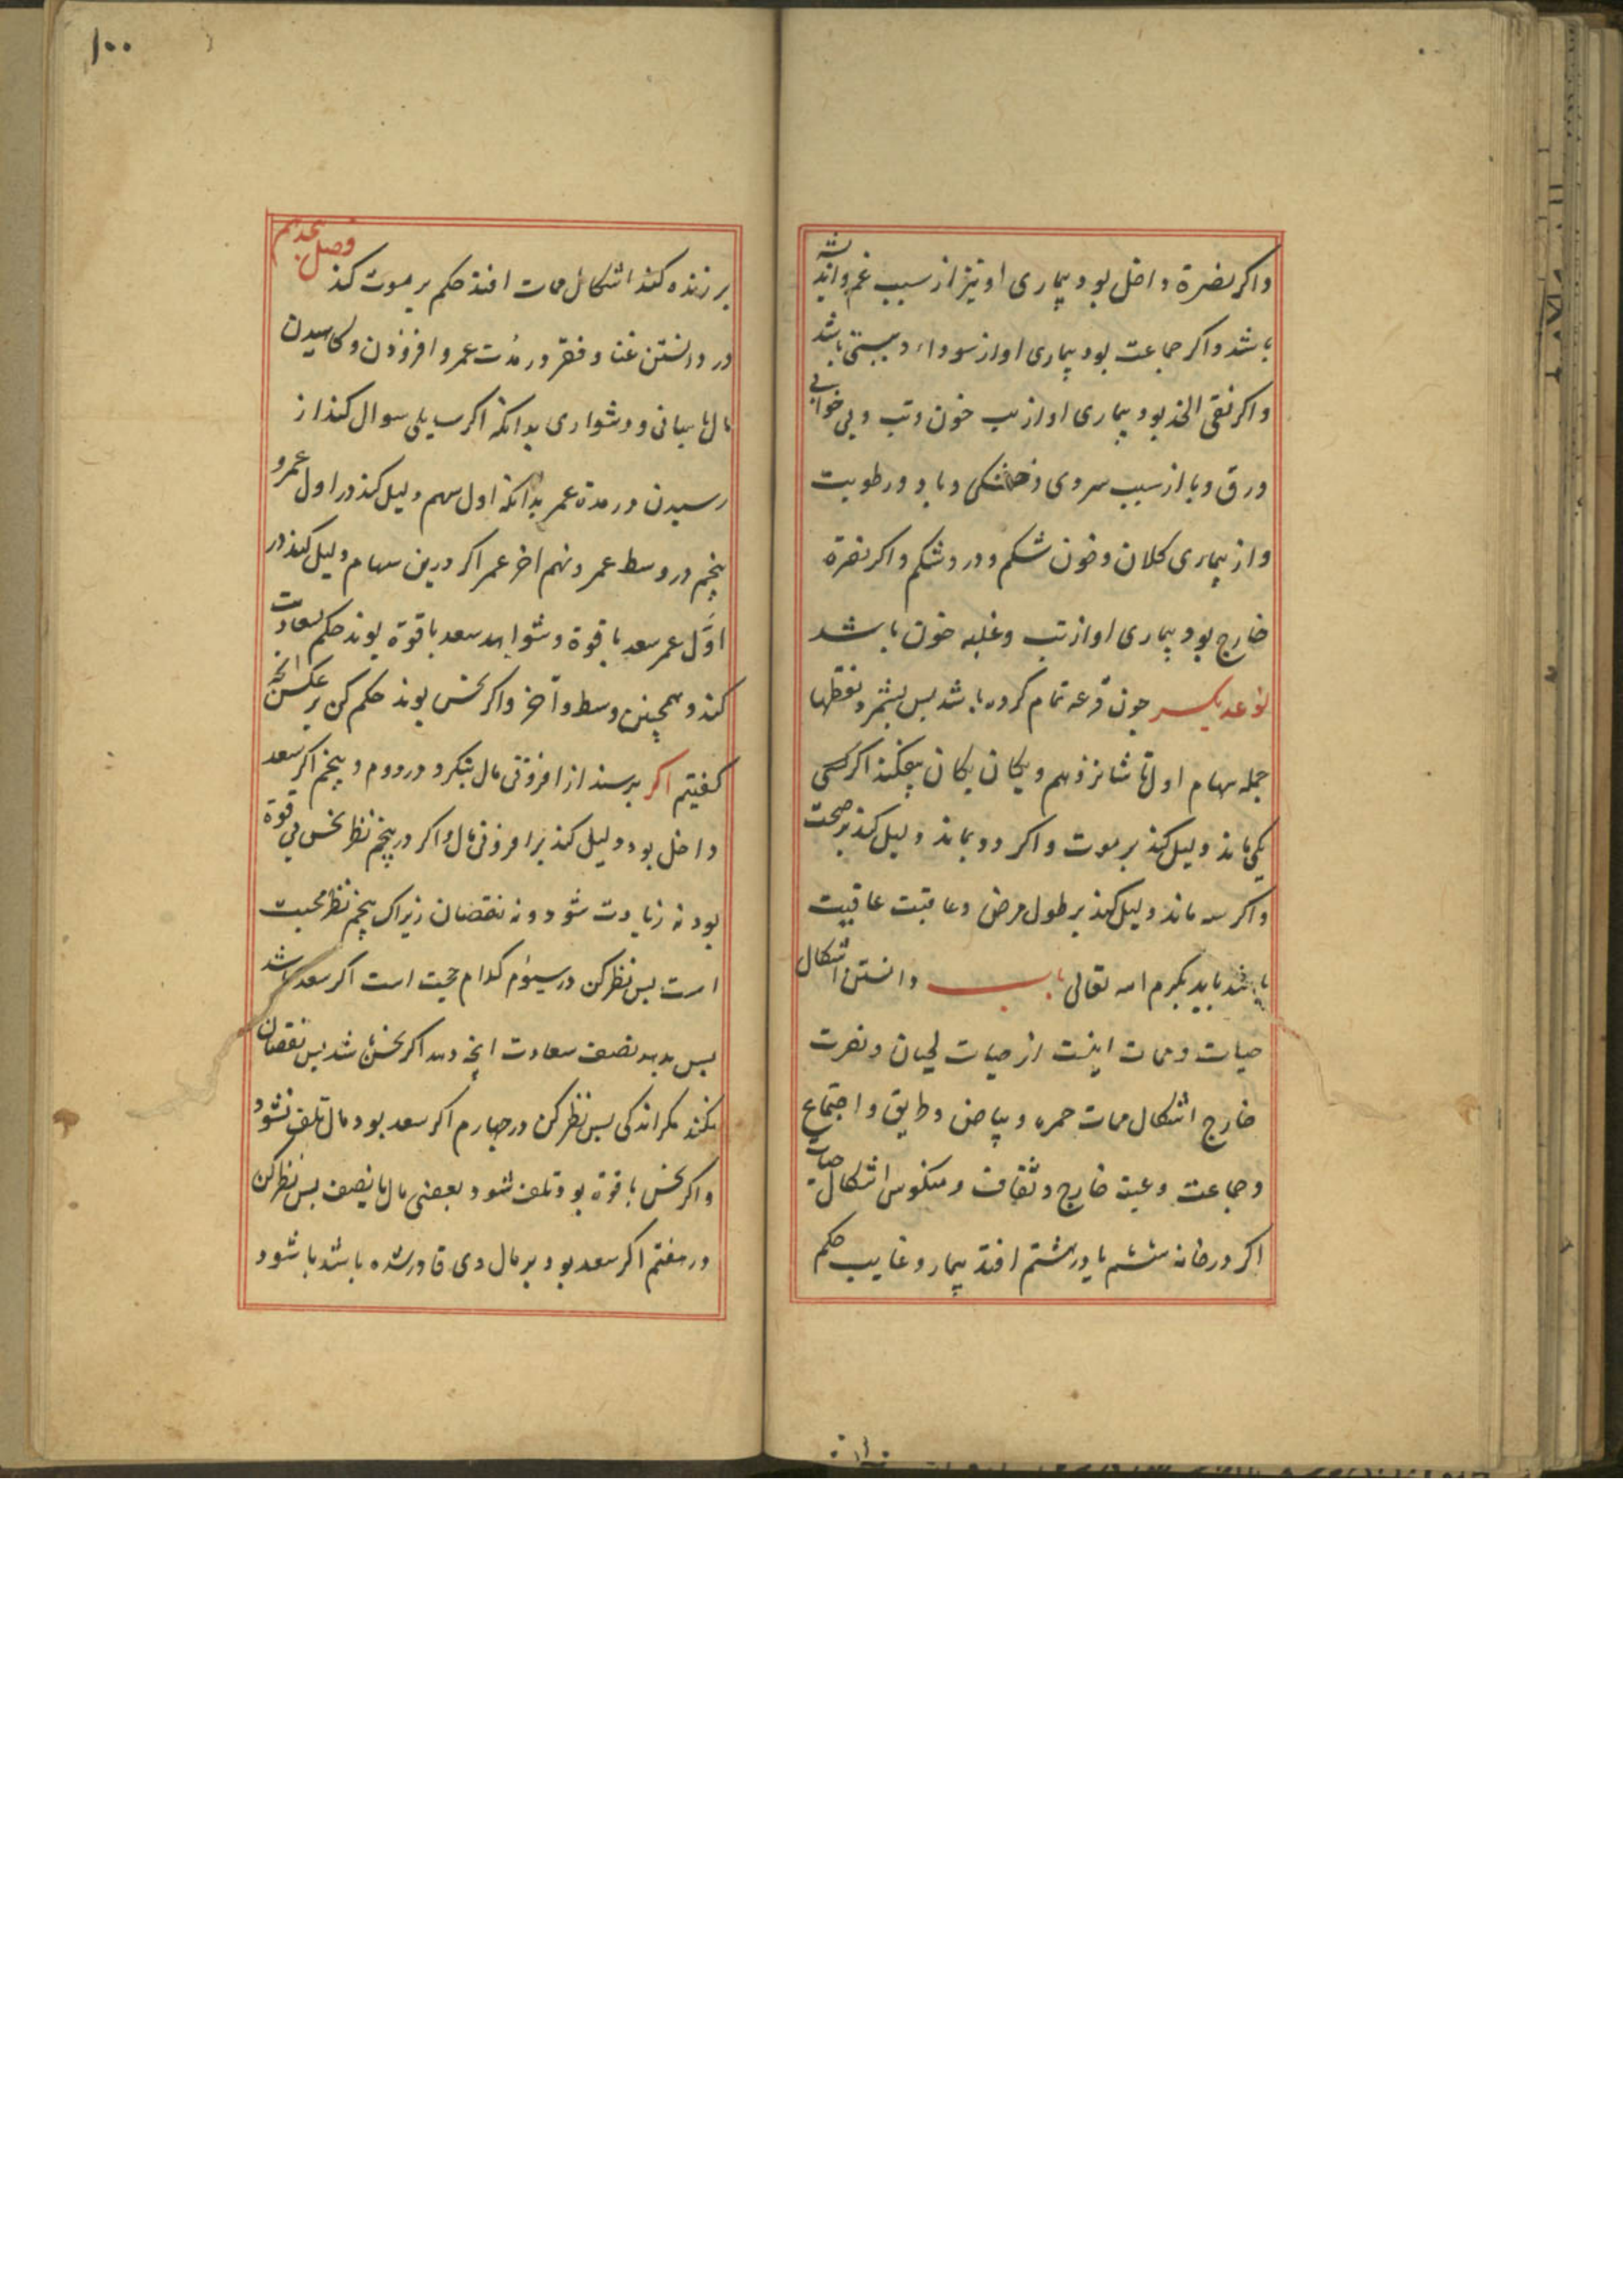 واکر نصرة داخل بود بیماری او نیز از سبب غم واندیشه
باشد واکر جماعت بود بیماری او از سوداء و باشد
واکر نقی الخد بود بیماری او از تب خون وتب وبی خوابی
ورق وبا از سبب سردی وخشکی وباد ورطوبت
واز بیماری کلان وخون شکم ودرد شکم واکر نصرة
خارج بود بیماری او از تب وغلبه خون باشد
نوعدیکر جون قرعه تمام کرده باشد بس بشمرد نقطها
جمله سهام اول تا شانزدهم ویکان یکان بیفکند اکر
یکی ماند دلیل کند بر موت واکر دو بماند دلیل کند بر صحت
واکر سه ماند دلیل کند بر طول مرض وعاقبت عافیت
باشد یابد بکرم الله تعالی باب دانستن اشکال
حیات وممات اینست از حیات لحیان ونصرت
خارج اشکال ممات حمره وبیاض وطریق واجتماع
وجماعت وعتبه خارج وثقاف ومنکوس اشکال حیات
اکر در خانه ششم یا در هشتم افتد بیمار وغایب حکم
۱۰۰
بر زنده کند اشکال ممات افتد حکم بر موت کند فصل هجدهم
در دانستن غنا وفقر ودر مدت عمر وافزودن وکاهیدن
مال باسانی ودشواری بدانکه اکر سایلی سوال کند از
رسیدن در مدة عمر بدانکه اول سهم دلیل کند در اول عمر و
پنجم در وسط عمر ونهم اخر عمر اکر درین سهام دلیل کند در
اوّل عمر سعد با قوة وشواهد سعد با قوة بوند حکم بسعادت
کند وهمچنین وسط وآخر واکر نحس بوند حکم کن بر عکس انچه
کفتیم اکر پرسند از افزونی مال بنکر در دوم وپنجم اکر سعد
داخل بود دلیل کند بر افزونی مال واکر در پنجم نظر نحس بی قوة
بود نه زیادت شود ونه نقصان زیراک پنجم نظر محبت
است بس نظر کن در سیوم کدام حجت است اکر سعد باشد
بس بدهد نصف سعادت انچه دهد اکر نحس باشد بس نقصان
نکند مکر اندکی بس نظر کن در جهارم اکر سعد بود مال تلف نشود
واکر نحس با قوة بود تلف شود بعضی مال یا نصف بس نظر کن
در هفتم اکر سعد بود بر مال وی قادر شده باشد یا شود